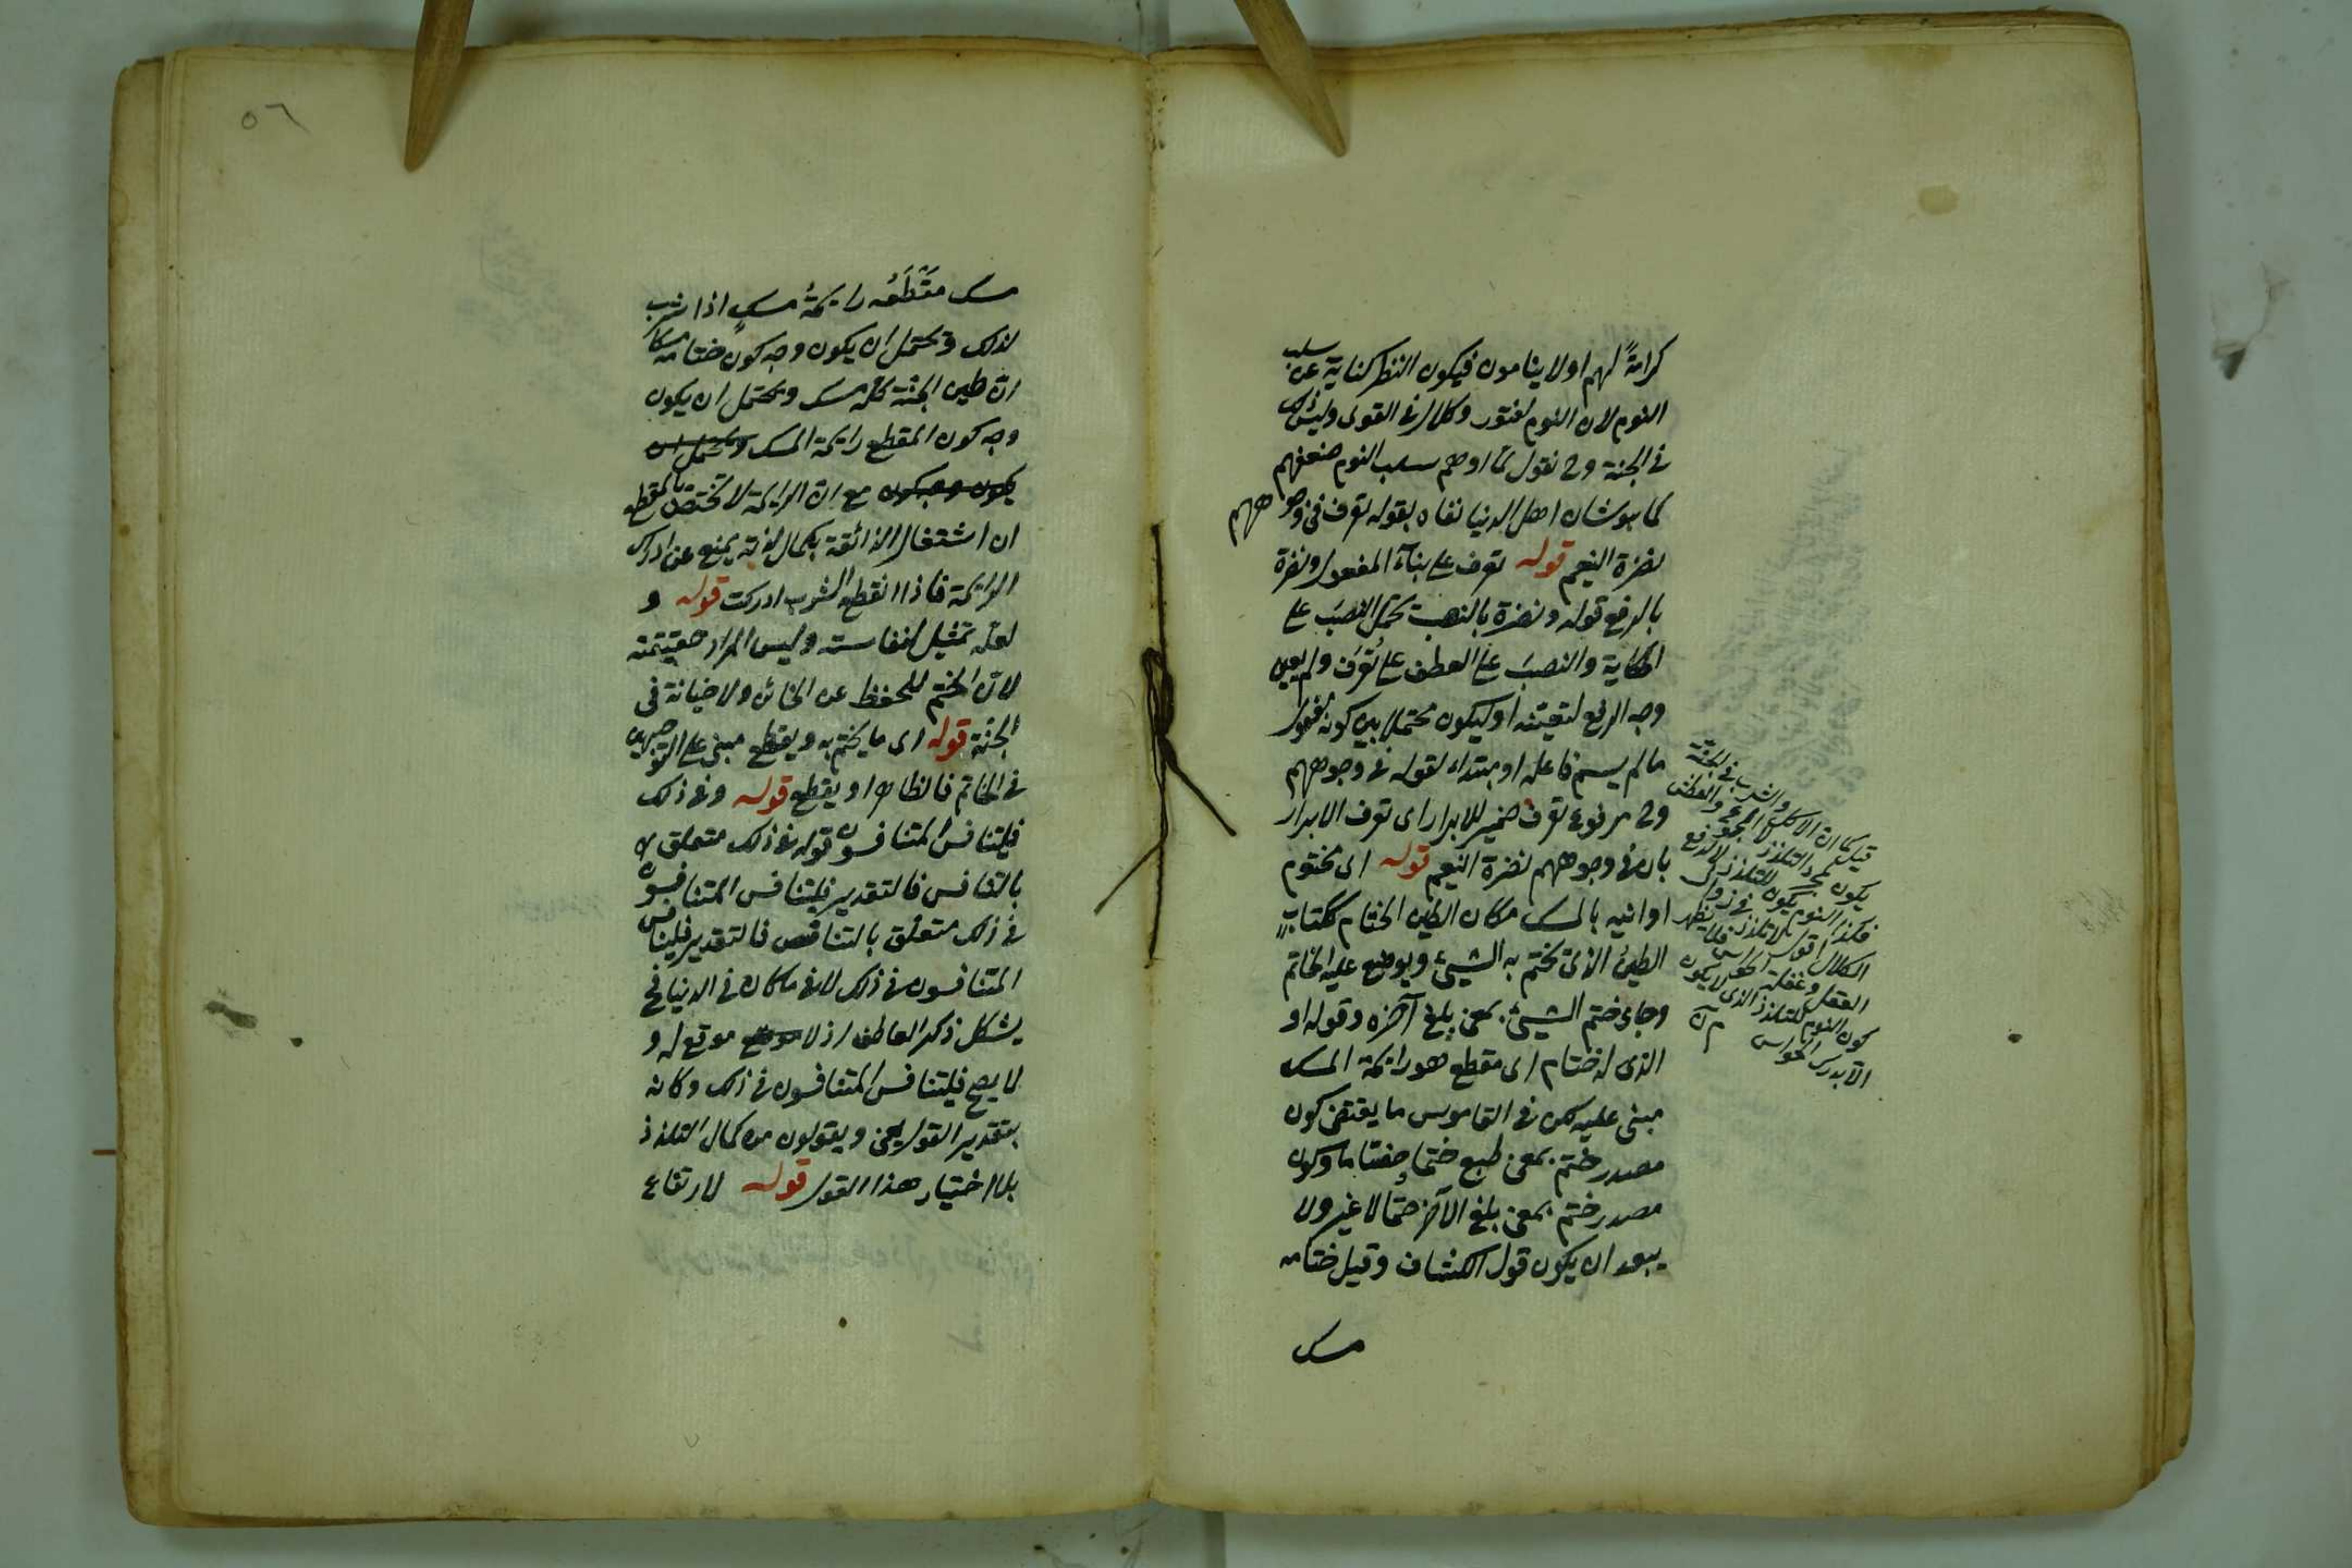 كرامةً لهم اولا ينامون فيكون النظر كناية عن سلب
النوم لان النوم لفتور وكلال فى القوى وليس ذلك
فى الجنة وح نقول لما اوهم سلب النوم ضعفهم
كما هو شان اهل الدنيا نفاه بقوله تعرف فى وجوههم
نضرة النعيم قوله تعرف على بناء المفعول ونضرة
بالرفع قوله ونضرة بالنصب يحتمل النصبَ على
الحكاية والنصبَ على العطف على تُعرَف ولم يعين
وجه الرفع لتعينه او ليكون محتملا بين كونه مفعول
ما لم يسم فاعله او مبتداء لقوله فى وجوههم
وح مرفوع تعرف ضمير للابرار اى تعرف الابرار
بان فى وجوههم نضرة النعيم قوله اى مختوم
اوانيه بالمسك مكان الطين الختام ككتاب
الطينُ الذى يختم به الشيئ ويوضع عليه الخاتم
وجاء ختم الشيئ بمعنى بلغ آخره وقوله او
الذى له ختام اى مقطع هو رايحة المسك
مبنى عليه لكن فى القاموس ما يقتضى كون
مصدر ختم بمعنى طبع ختما وختاما وكون
مصدر ختم بمعنى بلغ الآخر ختما لا غير ولا
يبعد ان يكون قول الكشاف وقيل ختامه
مسك
قيل كما ان الاكل والشرب فى الجنة
يكون لمجرد التلذذ لا لدفع الجوع والعطش
فكذا النوم يكون للتلذذ لا لدفع
الكلال اقول لا تلذذ فى زوال
العقل وغفلة الحواس فلا يظهر
كون النوم للتلذذ الذى لا يكون
الا بدرك الحواس منه
٥٦
مسك مَقْطَعُه رايحةُ مسكٍ اذا شرب
لذلك ويحتمل ان يكون وجه كون ختامه مسكا
ان طين الجنة كله مسك ويحتمل ان يكون
وجه كون المقطع رايحة المسك ويحتمل ان
يكون وجه كون مع ان الرايحة لا تختص بالمقطع
ان اشتغال الذائقة بكمال لذته يمنع عن ادراك
الرايحة فاذا انقطع الشرب ادركت قوله و
لعله تمثيل لنفاسته وليس المراد حقيقته
لان الختم للحفظ عن الخائن ولا خيانة فى
الجنة قوله اى ما يختم به ويقطع مبنى على التوجيهين
فى الخاتم فالظاهر او يقطع قوله وفى ذلك
فليتنافس المتنافسون قوله فى ذلك متعلق لا
بالتنافس فالتقدير فليتنافس المتنافسون
فى ذلك متعلق بالتنافس فالتقدير فليتنافس
المتنافسون فى ذلك لا فى ما كان فى الدنيا فح
يشكل ذكر العاطف اذ لا موقع له و
لا يصح فليتنافس المتنافسون فى ذلك وكانه
بتقدير القول يعنى ويقولون من كمال التلذذ
بلا اختيار هذا القول قوله لارتفاع